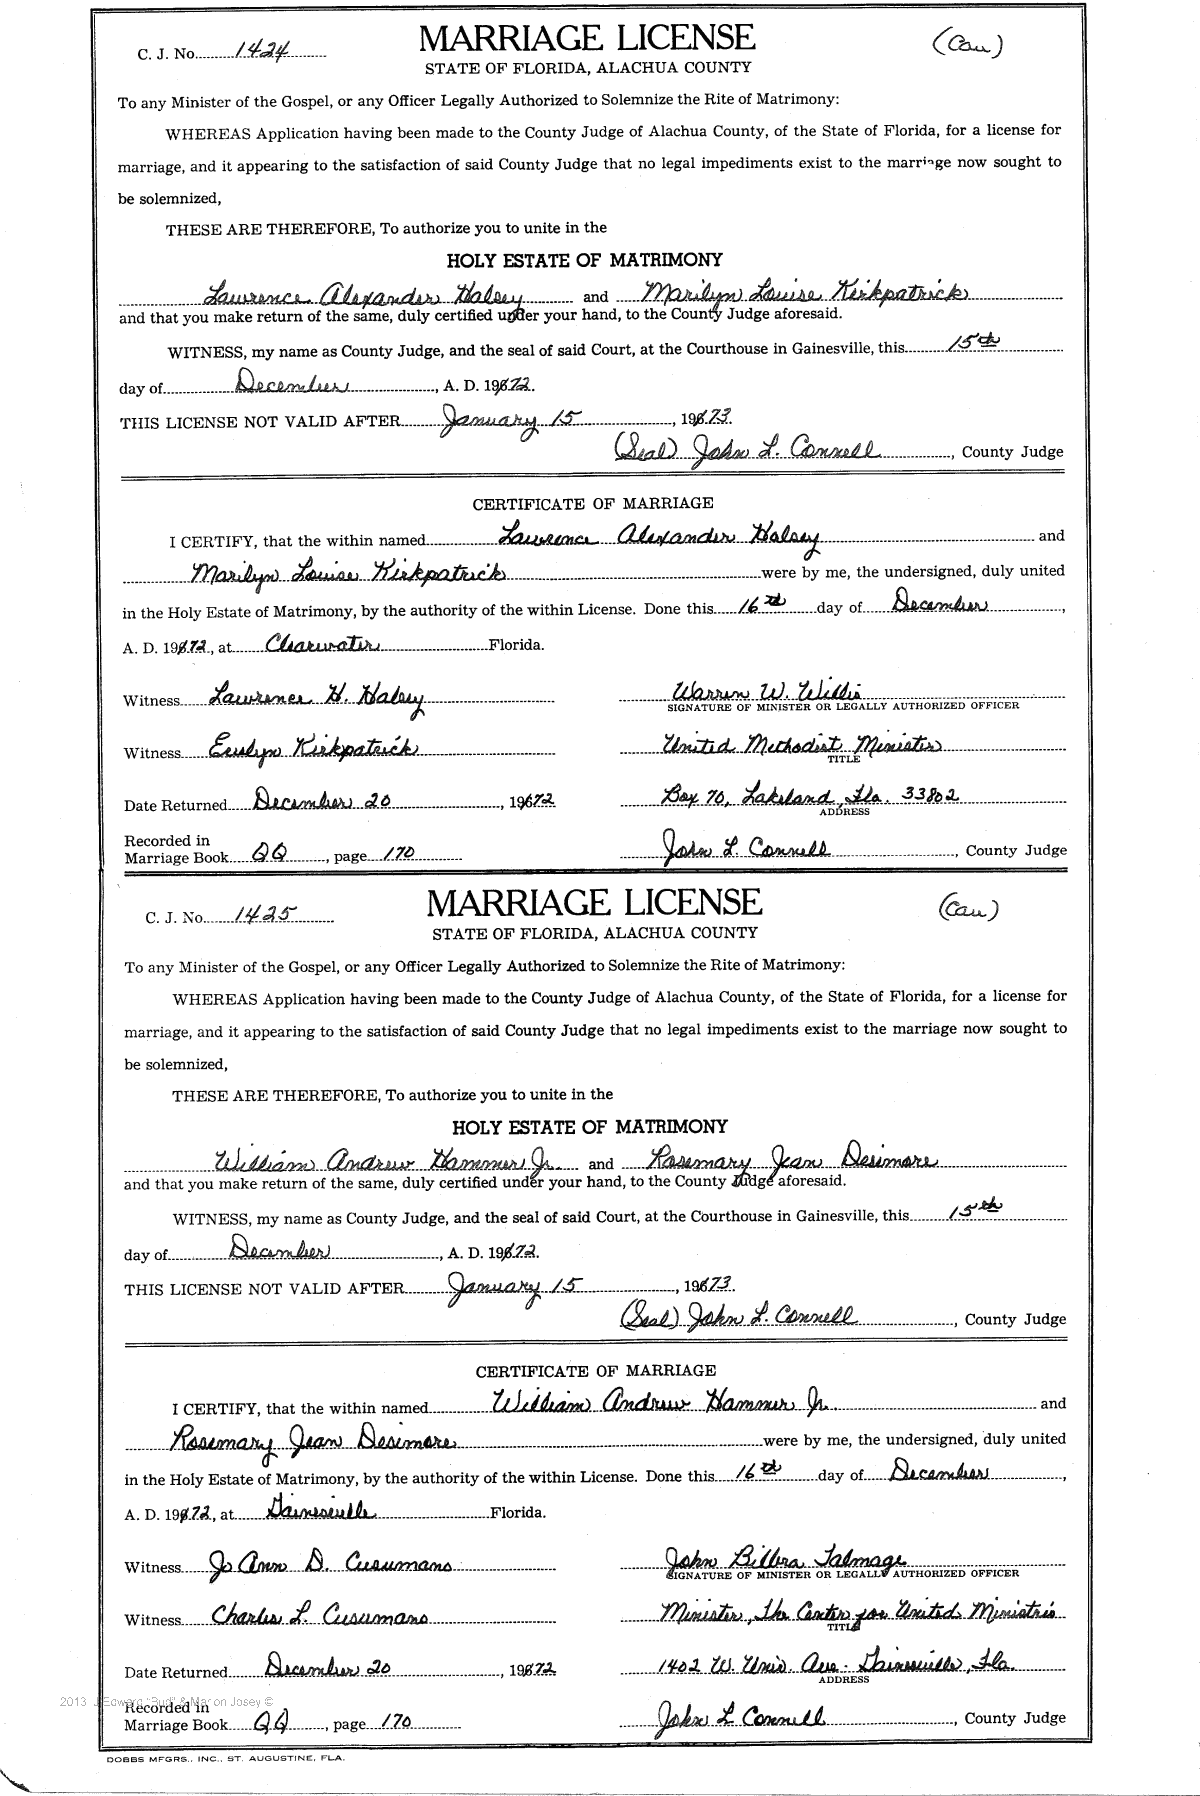 C. J. No. 1424
MARRIAGE LICENSE
(Cau)
STATE OF FLORIDA, ALACHUA COUNTY
To any Minister of the Gospel, or any Officer Legally Authorized to Solemnize the Rite of Matrimony:
WHEREAS Application having been made to the County Judge of Alachua County, of the State of Florida, for a license for
marriage, and it appearing to the satisfaction of said County Judge that no legal impediments exist to the marriage now sought to
be solemnized,
THESE ARE THEREFORE, To authorize you to unite in the
HOLY ESTATE OF MATRIMONY
Lawrence Alexander Halsey and Marilyn Louise Kirkpatrick
and that you make return of the same, duly certified under your hand, to the County Judge aforesaid.
WITNESS, my name as County Judge, and the seal of said Court, at the Courthouse in Gainesville, this 15th
day of December, A. D. 1972.
THIS LICENSE NOT VALID AFTER January 15, 1973.
(Seal) John L. Connell, County Judge
CERTIFICATE OF MARRIAGE
I CERTIFY, that the within named Lawrence Alexander Halsey and
Marilyn Louise Kirkpatrick were by me, the undersigned, duly united
in the Holy Estate of Matrimony, by the authority of the within License. Done this 16th day of December,
A. D. 1972, at Clearwater Florida.
Witness Lawrence H. Halsey Warren W. Willis
SIGNATURE OF MINISTER OR LEGALLY AUTHORIZED OFFICER
Witness Evelyn Kirkpatrick United Methodist Minister
TITLE
Date Returned December 20, 1972 Box 70, Lakeland, Fla. 33802
ADDRESS
Recorded in
Marriage Book QQ, page 170 John L. Connell, County Judge
C. J. No. 1425
MARRIAGE LICENSE
(Cau)
STATE OF FLORIDA, ALACHUA COUNTY
To any Minister of the Gospel, or any Officer Legally Authorized to Solemnize the Rite of Matrimony:
WHEREAS Application having been made to the County Judge of Alachua County, of the State of Florida, for a license for
marriage, and it appearing to the satisfaction of said County Judge that no legal impediments exist to the marriage now sought to
be solemnized,
THESE ARE THEREFORE, To authorize you to unite in the
HOLY ESTATE OF MATRIMONY
William Andrew Hammer Jr. and Rosemary Jean Desimore
and that you make return of the same, duly certified under your hand, to the County Judge aforesaid.
WITNESS, my name as County Judge, and the seal of said Court, at the Courthouse in Gainesville, this 15th
day of December, A. D. 1972.
THIS LICENSE NOT VALID AFTER January 15, 1973.
(Seal) John L. Connell, County Judge
CERTIFICATE OF MARRIAGE
I CERTIFY, that the within named William Andrew Hammer Jr. and
Rosemary Jean Desimore were by me, the undersigned, duly united
in the Holy Estate of Matrimony, by the authority of the within License. Done this 16th day of December,
A. D. 1972, at Gainesville Florida.
Witness Jo Ann D. Cusumano John Talmage
SIGNATURE OF MINISTER OR LEGALLY AUTHORIZED OFFICER
Witness Charles L. Cusumano Minister, The Center for United Ministries
TITLE
Date Returned December 20, 1972 1402 W. Univ. Ave. Gainesville, Fla.
ADDRESS
2013 J Edward "Bud" & Marion Josey ©
Recorded in
Marriage Book QQ, page 170 John L Connell, County Judge
DOBBS MFGRS., INC., ST. AUGUSTINE, FLA.